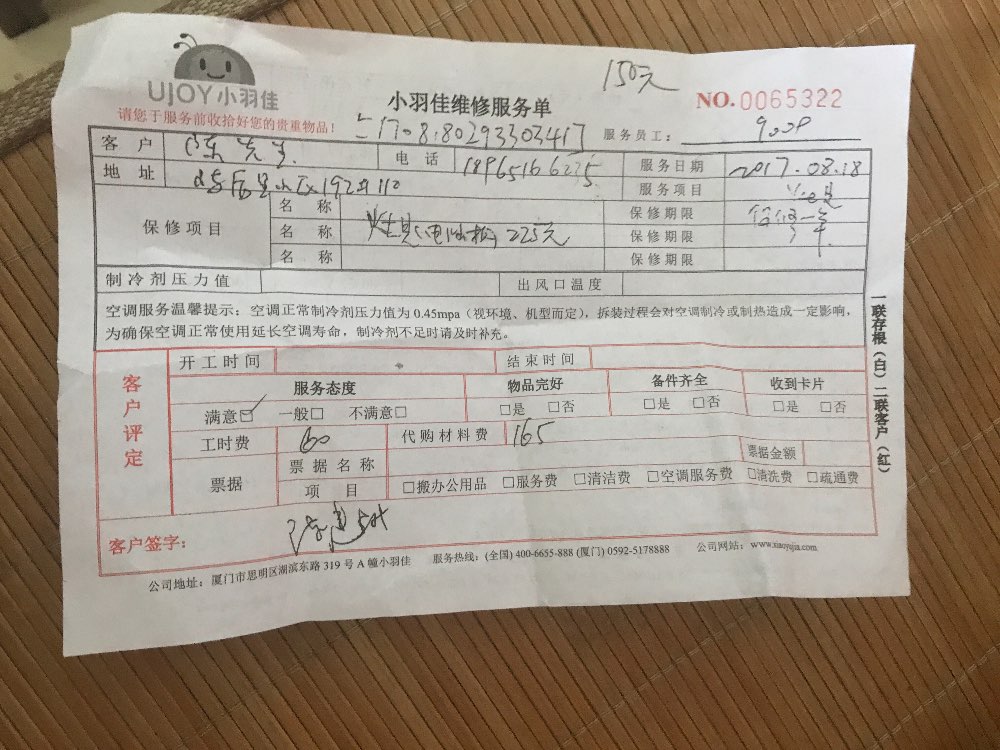 150元
UJOY小羽佳
小羽佳维修服务单
NO.0065322
请您于服务前收拾好您的贵重物品！
1708180293303417
服务员工：
客户 陈先生
电话
服务日期 2017.08.18
地址
服务项目 灶具
保修项目
名称
保修期限
名称 灶具 225元
保修期限
名称
保修期限
制冷剂压力值
出风口温度
空调服务温馨提示：空调正常制冷剂压力值为 0.45mpa（视环境、机型而定），拆装过程会对空调制冷或制热造成一定影响，
为确保空调正常使用延长空调寿命，制冷剂不足时请及时补充。
一联存根（白）二联客户（红）
客户评定
开工时间
结束时间
服务态度 物品完好 备件齐全 收到卡片
满意□ 一般□ 不满意□ □是 □否 □是 □否 □是 □否
工时费 60 代购材料费 165
票据
票据名称
票据金额
项目 □搬办公用品 □服务费 □清洁费 □空调服务费 □清洗费 □疏通费
客户签字：
公司地址：厦门市思明区湖滨东路 319 号 A 幢小羽佳 服务热线：(全国) 400-6655-888 (厦门) 0592-5178888 公司网站：www.xiaoyujia.com